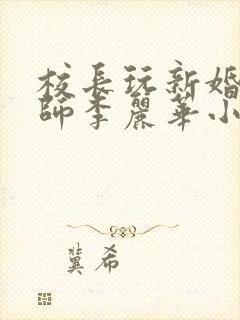 校長玩新婚
師李麗華小
冀希